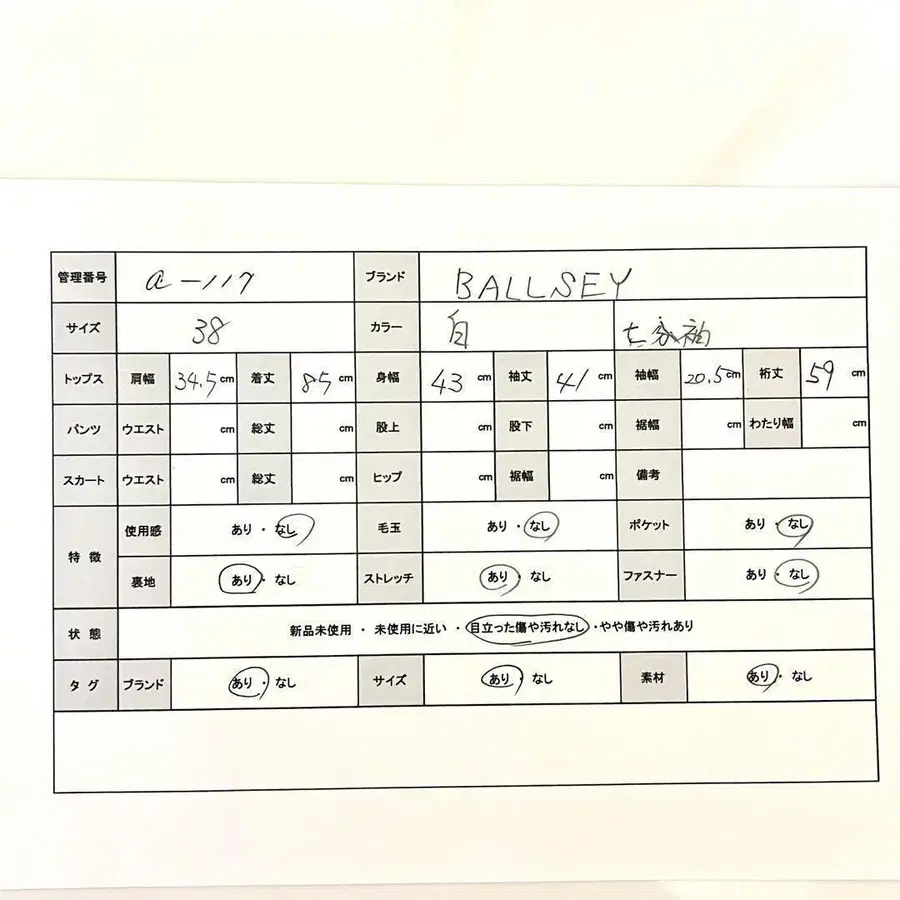 管理番号 a-117 ブランド BALLSEY
サイズ 38 カラー 白 七分袖
トップス 肩幅 34.5cm 着丈 85cm 身幅 43cm 袖丈 41cm 袖幅 20.5cm 裄丈 59cm
パンツ ウエスト cm 総丈 cm 股上 cm 股下 cm 裾幅 cm わたり幅 cm
スカート ウエスト cm 総丈 cm ヒップ cm 裾幅 cm 備考
特徴 使用感 あり・なし 毛玉 あり・なし ポケット あり・なし
裏地 あり・なし ストレッチ あり・なし ファスナー あり・なし
状態 新品未使用・未使用に近い・目立った傷や汚れなし・やや傷や汚れあり
タグ ブランド あり・なし サイズ あり・なし 素材 あり・なし